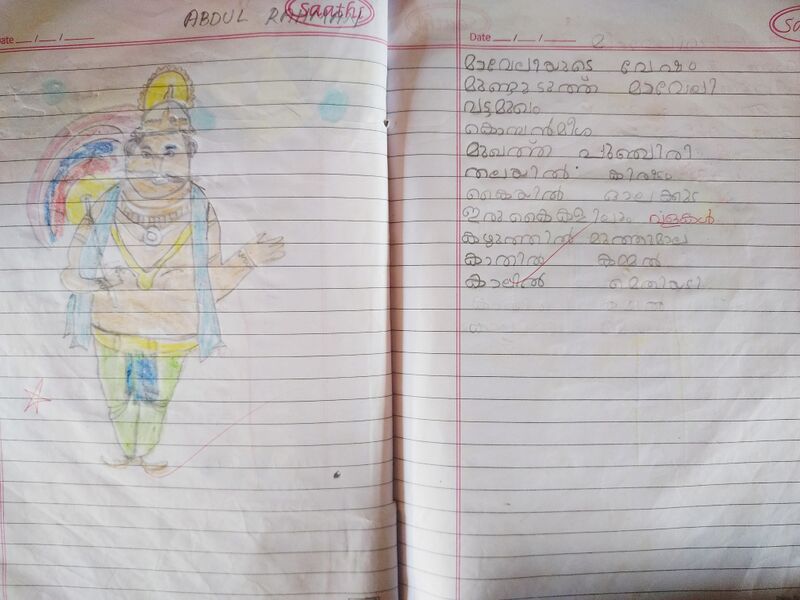 ABDUL RAHMAN
Saathi
Date __/__/__
Date __/__/__
മാവേലിയുടെ വേഷം
മുണ്ടുടുത്ത് മാവേലി
വട്ടമുഖം
കൊമ്പൻമീശ
മുഖത്ത് പുഞ്ചിരി
തലയിൽ കിരീടം
കൈയിൽ ഓലക്കുട
ഇരു കൈകളിലും വളകൾ
കഴുത്തിൽ മുത്തുമാല
കാതിൽ കമ്മൽ
കാലിൽ മെതിയടി